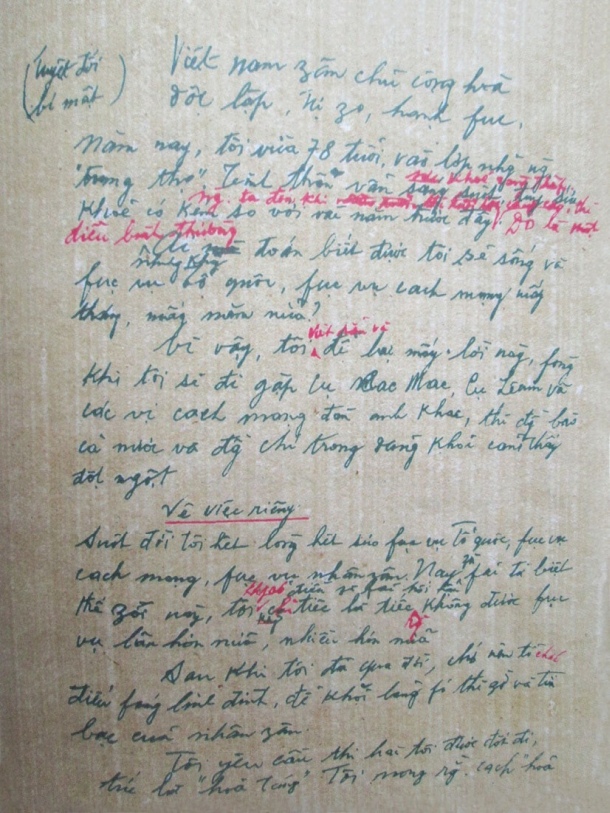 (tuyệt đối
bí mật)
Việt nam zân chủ cộng hoà
độc lập, tự zo, hạnh fúc.
Năm nay, tôi vừa 78 tuổi, vào lớp những ng
"trung thọ". Tinh thần vẫn sáng suốt, thân thể
khoẻ có kém so với vài năm trước đây. Đó là một
Ng. ta đến khi
điều bình thường
Nhưng không
Ai mà đoán biết được tôi sẽ sống và
fục vụ tổ quốc, fục vụ cách mạng mấy
tháng, mấy năm nữa?
Vì vậy, tôi viết sẵn và để lại mấy lời này, fòng
khi tôi sẽ đi gặp Cụ Cac Mac, Cụ Lênin và
các vị cách mạng đàn anh khác, thì đồng bào
cả nước và đ/g chí trong đảng khỏi cảm thấy
đột ngột
Về việc riêng
Suốt đời tôi hết lòng hết sức fục vụ Tổ quốc, fục vụ
cách mạng, fục vụ nhân zân. Nay zù fải từ biệt
thế zới này, tôi không có điều gì fải hối hận
chỉ tiếc là tiếc không được fục
vụ lâu hơn nữa, nhiều hơn nữa
Sau khi tôi đã qua đời, chớ nên tổ chức
điếu fúng linh đình, để khỏi lãng fí thì zờ và tiền
bạc của nhân zân.
Tôi yêu cầu thi hài tôi được đốt đi,
tức là "hoả táng". Tôi mong rg. cách "hoả